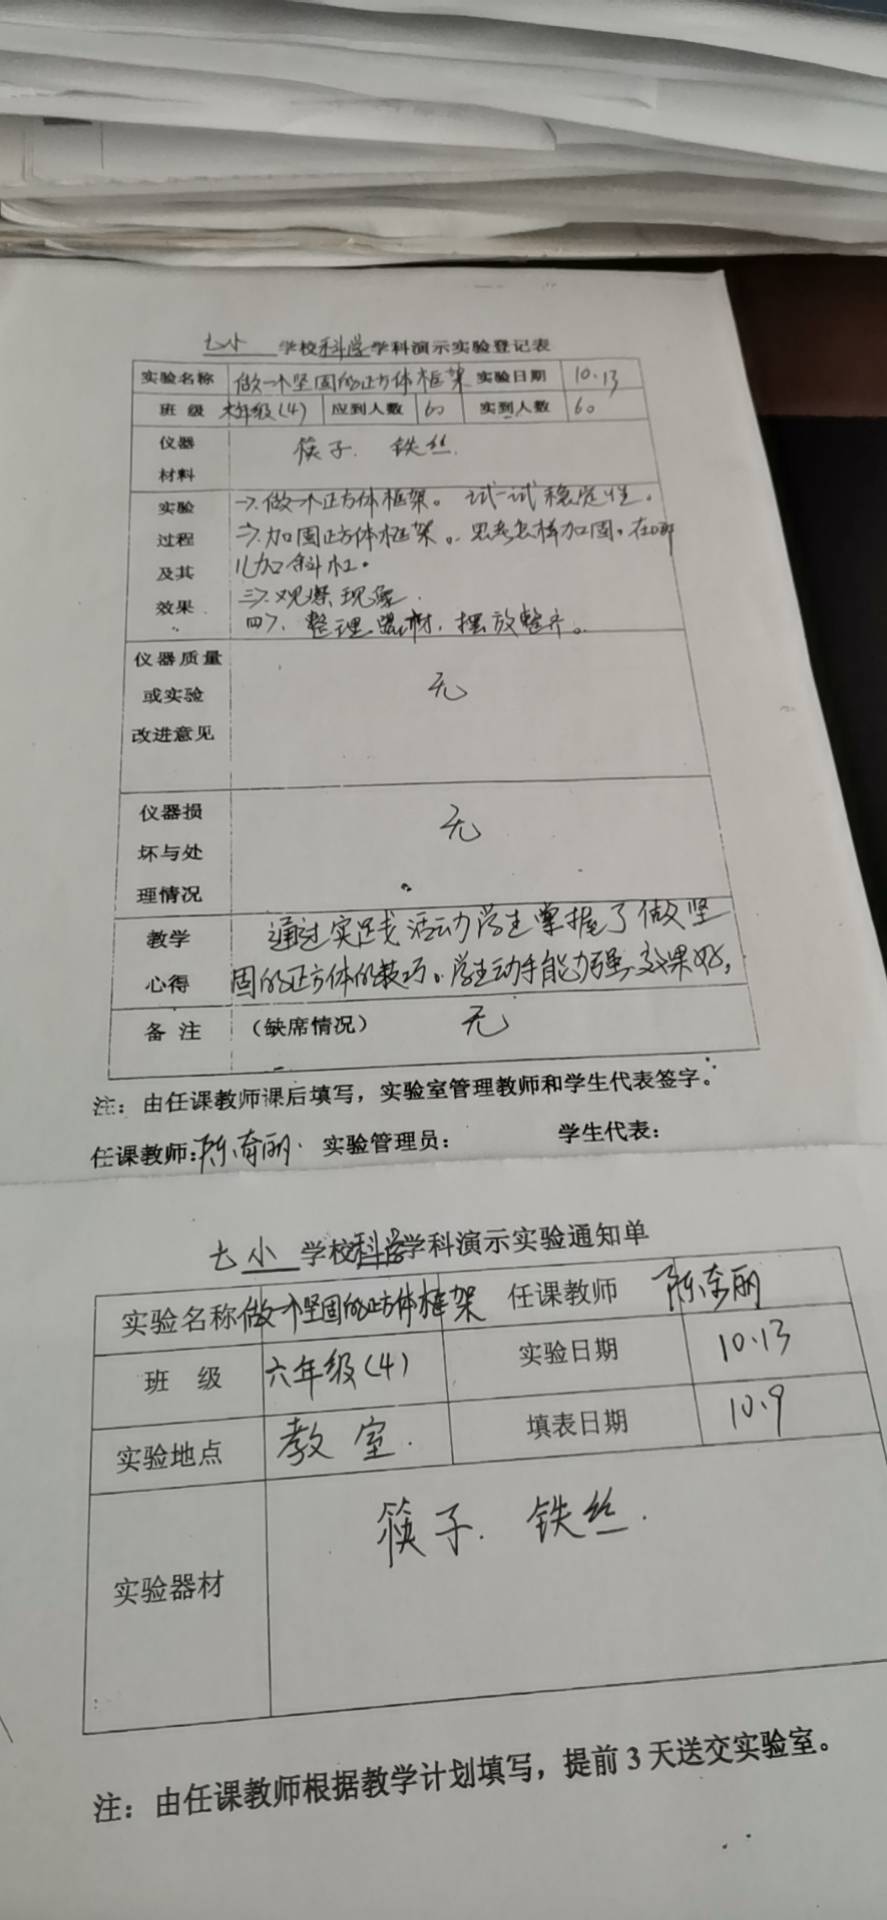 七小 学校科学学科演示实验登记表
实验名称 做一个坚固的正方体框架 实验日期 10.13
班 级 六年级(4) 应到人数 60 实到人数 60
仪器 筷子. 铁丝.
材料
实验 一>.做一个正方体框架。试一试稳定性。
过程 二>.加固正方体框架。思考怎样加固。在哪
及其 儿加斜杠。
效果 三>.观察现象.
四>.整理器材,摆放整齐。
仪器质量
或实验 无
改进意见
仪器损
坏与处 无
理情况
教学 通过实践活动学生掌握了做坚
心得 固的正方体的技巧。学生动手能力强,效果好。
备 注 (缺席情况) 无
注：由任课教师课后填写，实验室管理教师和学生代表签字。
任课教师:陈奇丽. 实验管理员： 学生代表：
七小 学校科学学科演示实验通知单
实验名称 做一个坚固的正方体框架 任课教师 陈奇丽
班 级 六年级(4) 实验日期 10.13
实验地点 教室. 填表日期 10.9
筷子. 铁丝.
实验器材
注：由任课教师根据教学计划填写，提前 3 天送交实验室。